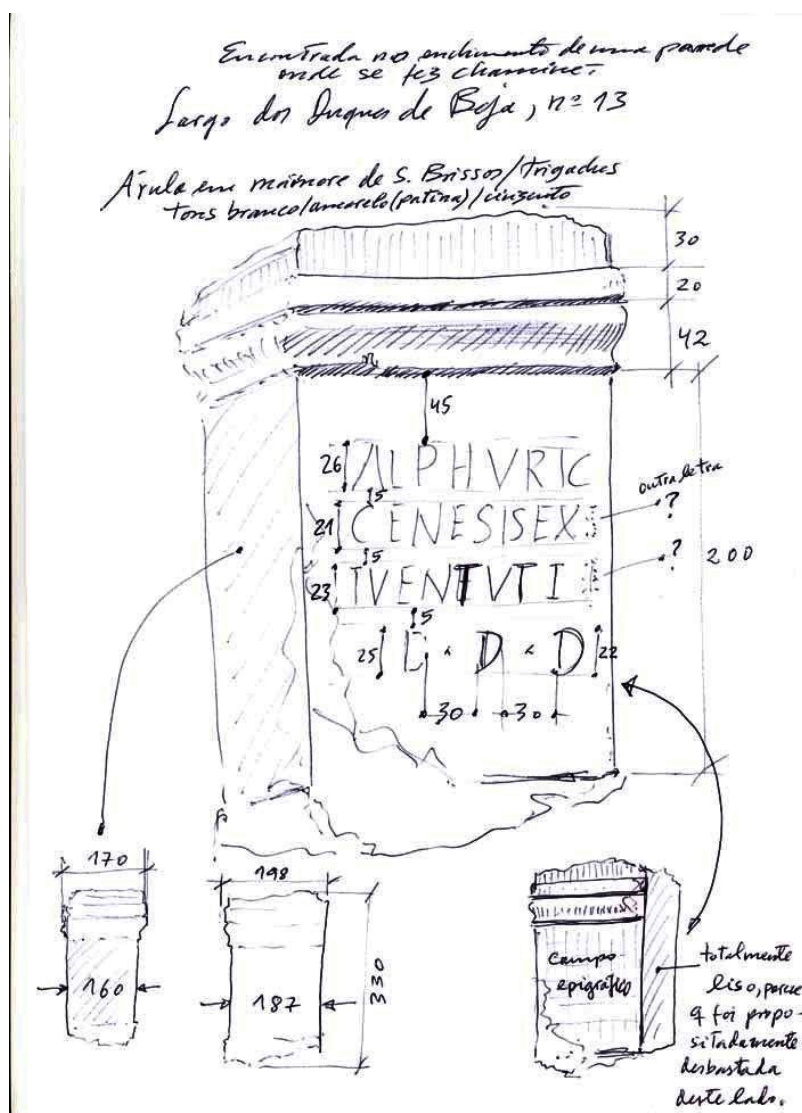 Encontrada no enchimento de uma parede
onde se fez chaminé.
Largo dos Duques de Beja, nº 13
Árula em mármore de S. Brissos/Trigaches
tons branco/amarelo(patina)/cinzento
30
20
42
45
26 ALPHVRIC
5
outra letra
21 CENESISEX ?
5
200
23 IVENTVTI ?
5
25 D · D · D 22
30 30
170
198
160
187
330
campo
epigráfico
totalmente
liso, parece
q foi propo-
sitadamente
desbastada
deste lado.